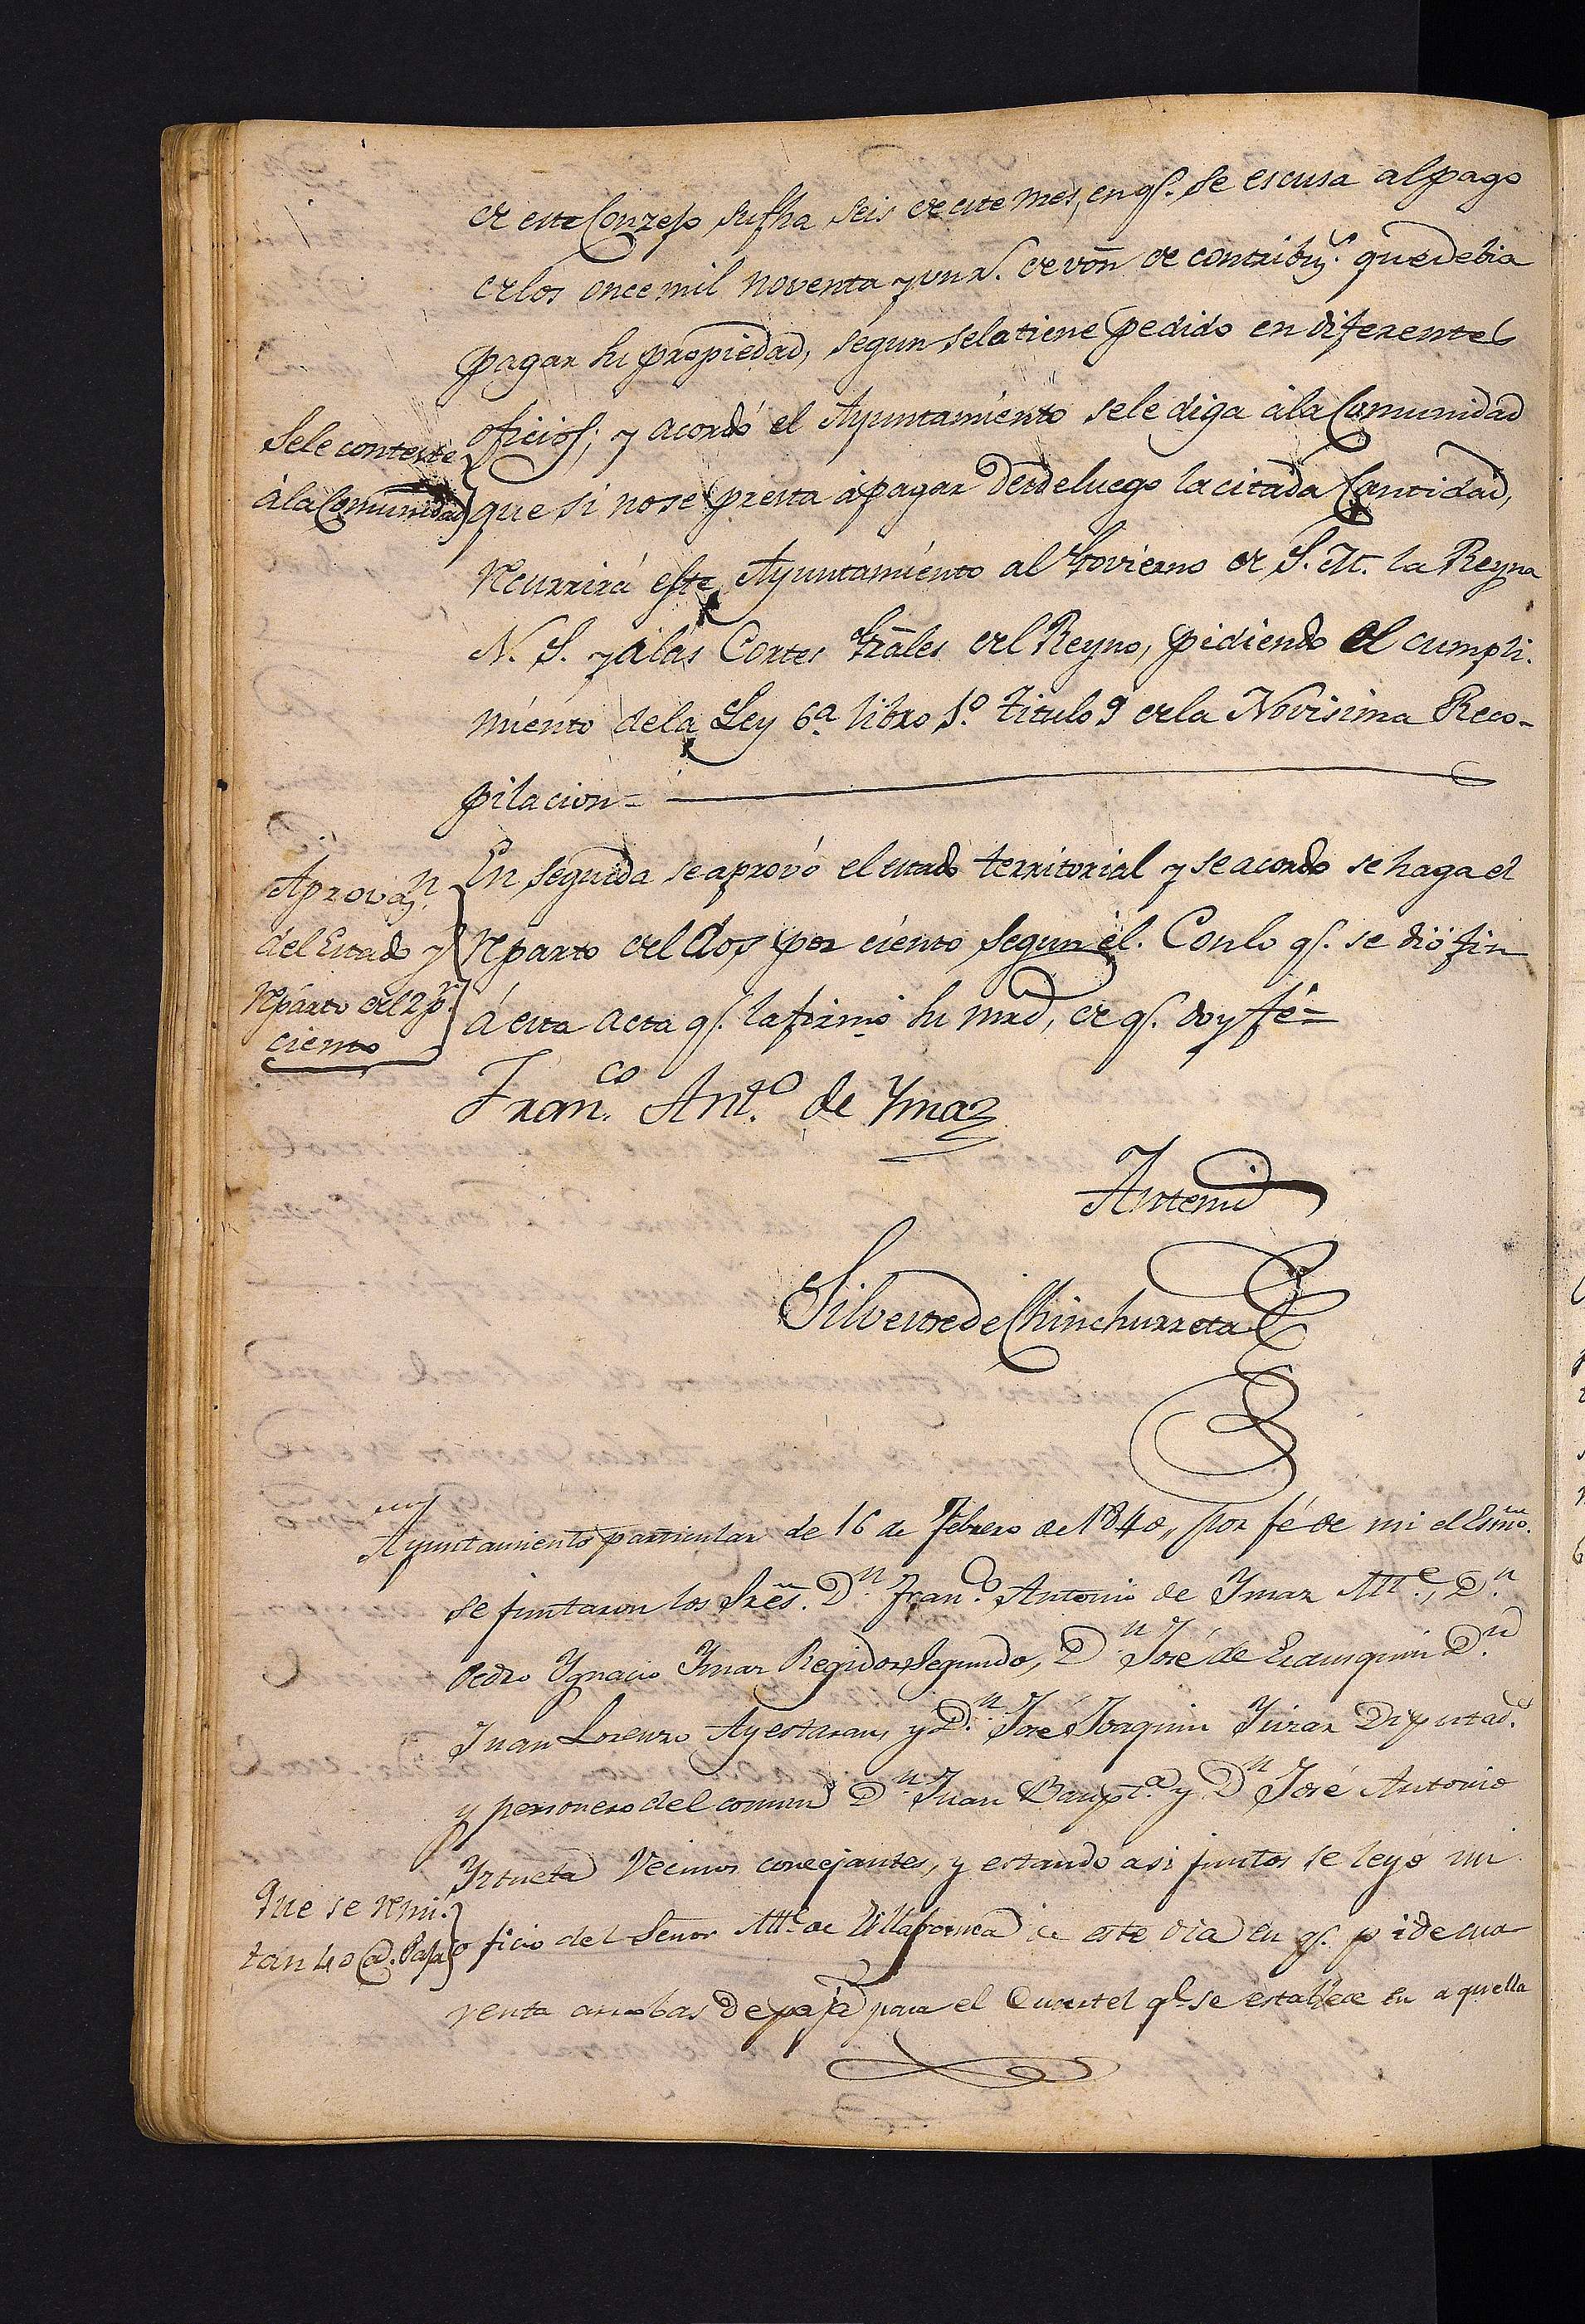 de este Conzejo su fha seis de este mes, en qe. se escusa al pago
de los once mil noventa y un rs. de von de contribun. que debia
pagar su propiedad, segun se la tiene pedido en diferentes
oficios; y acordó el Ayuntamiento se le diga á la Comunidad
Se le conteste
á la Comunidad
que si no se presta á pagar desde luego la citada Cantidad,
recurrirá este Ayuntamiento al Govierno de S. M. la Reyna
N. S. y á las Cortes Grales del Reyno, pidiendo el cumpli-
miento de la Ley 6ª libro 1º titulo 9 de la Novisima Reco-
pilacion=
En seguida se aprovó el estado territorial y se acordo se haga el
Aprovaon.
del Estado y
reparto del 2 pr.
ciento
reparto del dos por ciento segun él. Con lo qe. se dió fin
á esta acta qe. la firmó su mrd, de qe. doy fé=
Franco. Anto. de Ymaz
Antemi
Silvestre de Chinchurreta
Ayuntamiento particular de 16 de Febrero de 1840, por fé de mi el Esno.
se juntaron los Sres. Dn. Franco. Antonio de Ymaz Alle., Dn.
Pedro Ygnacio Ymaz Regidor Segundo, Dn. José de Dn.
Juan Lorenzo Ayestaran, y Dn. José Joaquin Diputads.
y personero del comun Dn. Juan Baupta. y Dn José Antonio
Yztueta Vecinos concejantes, y estando asi juntos se leyó un
Que se remi-
tan 40 @. Paja
oficio del Señor Alle. de Villafranca de este dia en qe. pide cua
renta arrobas de paja para el Cuartel qe. se establece en aquella